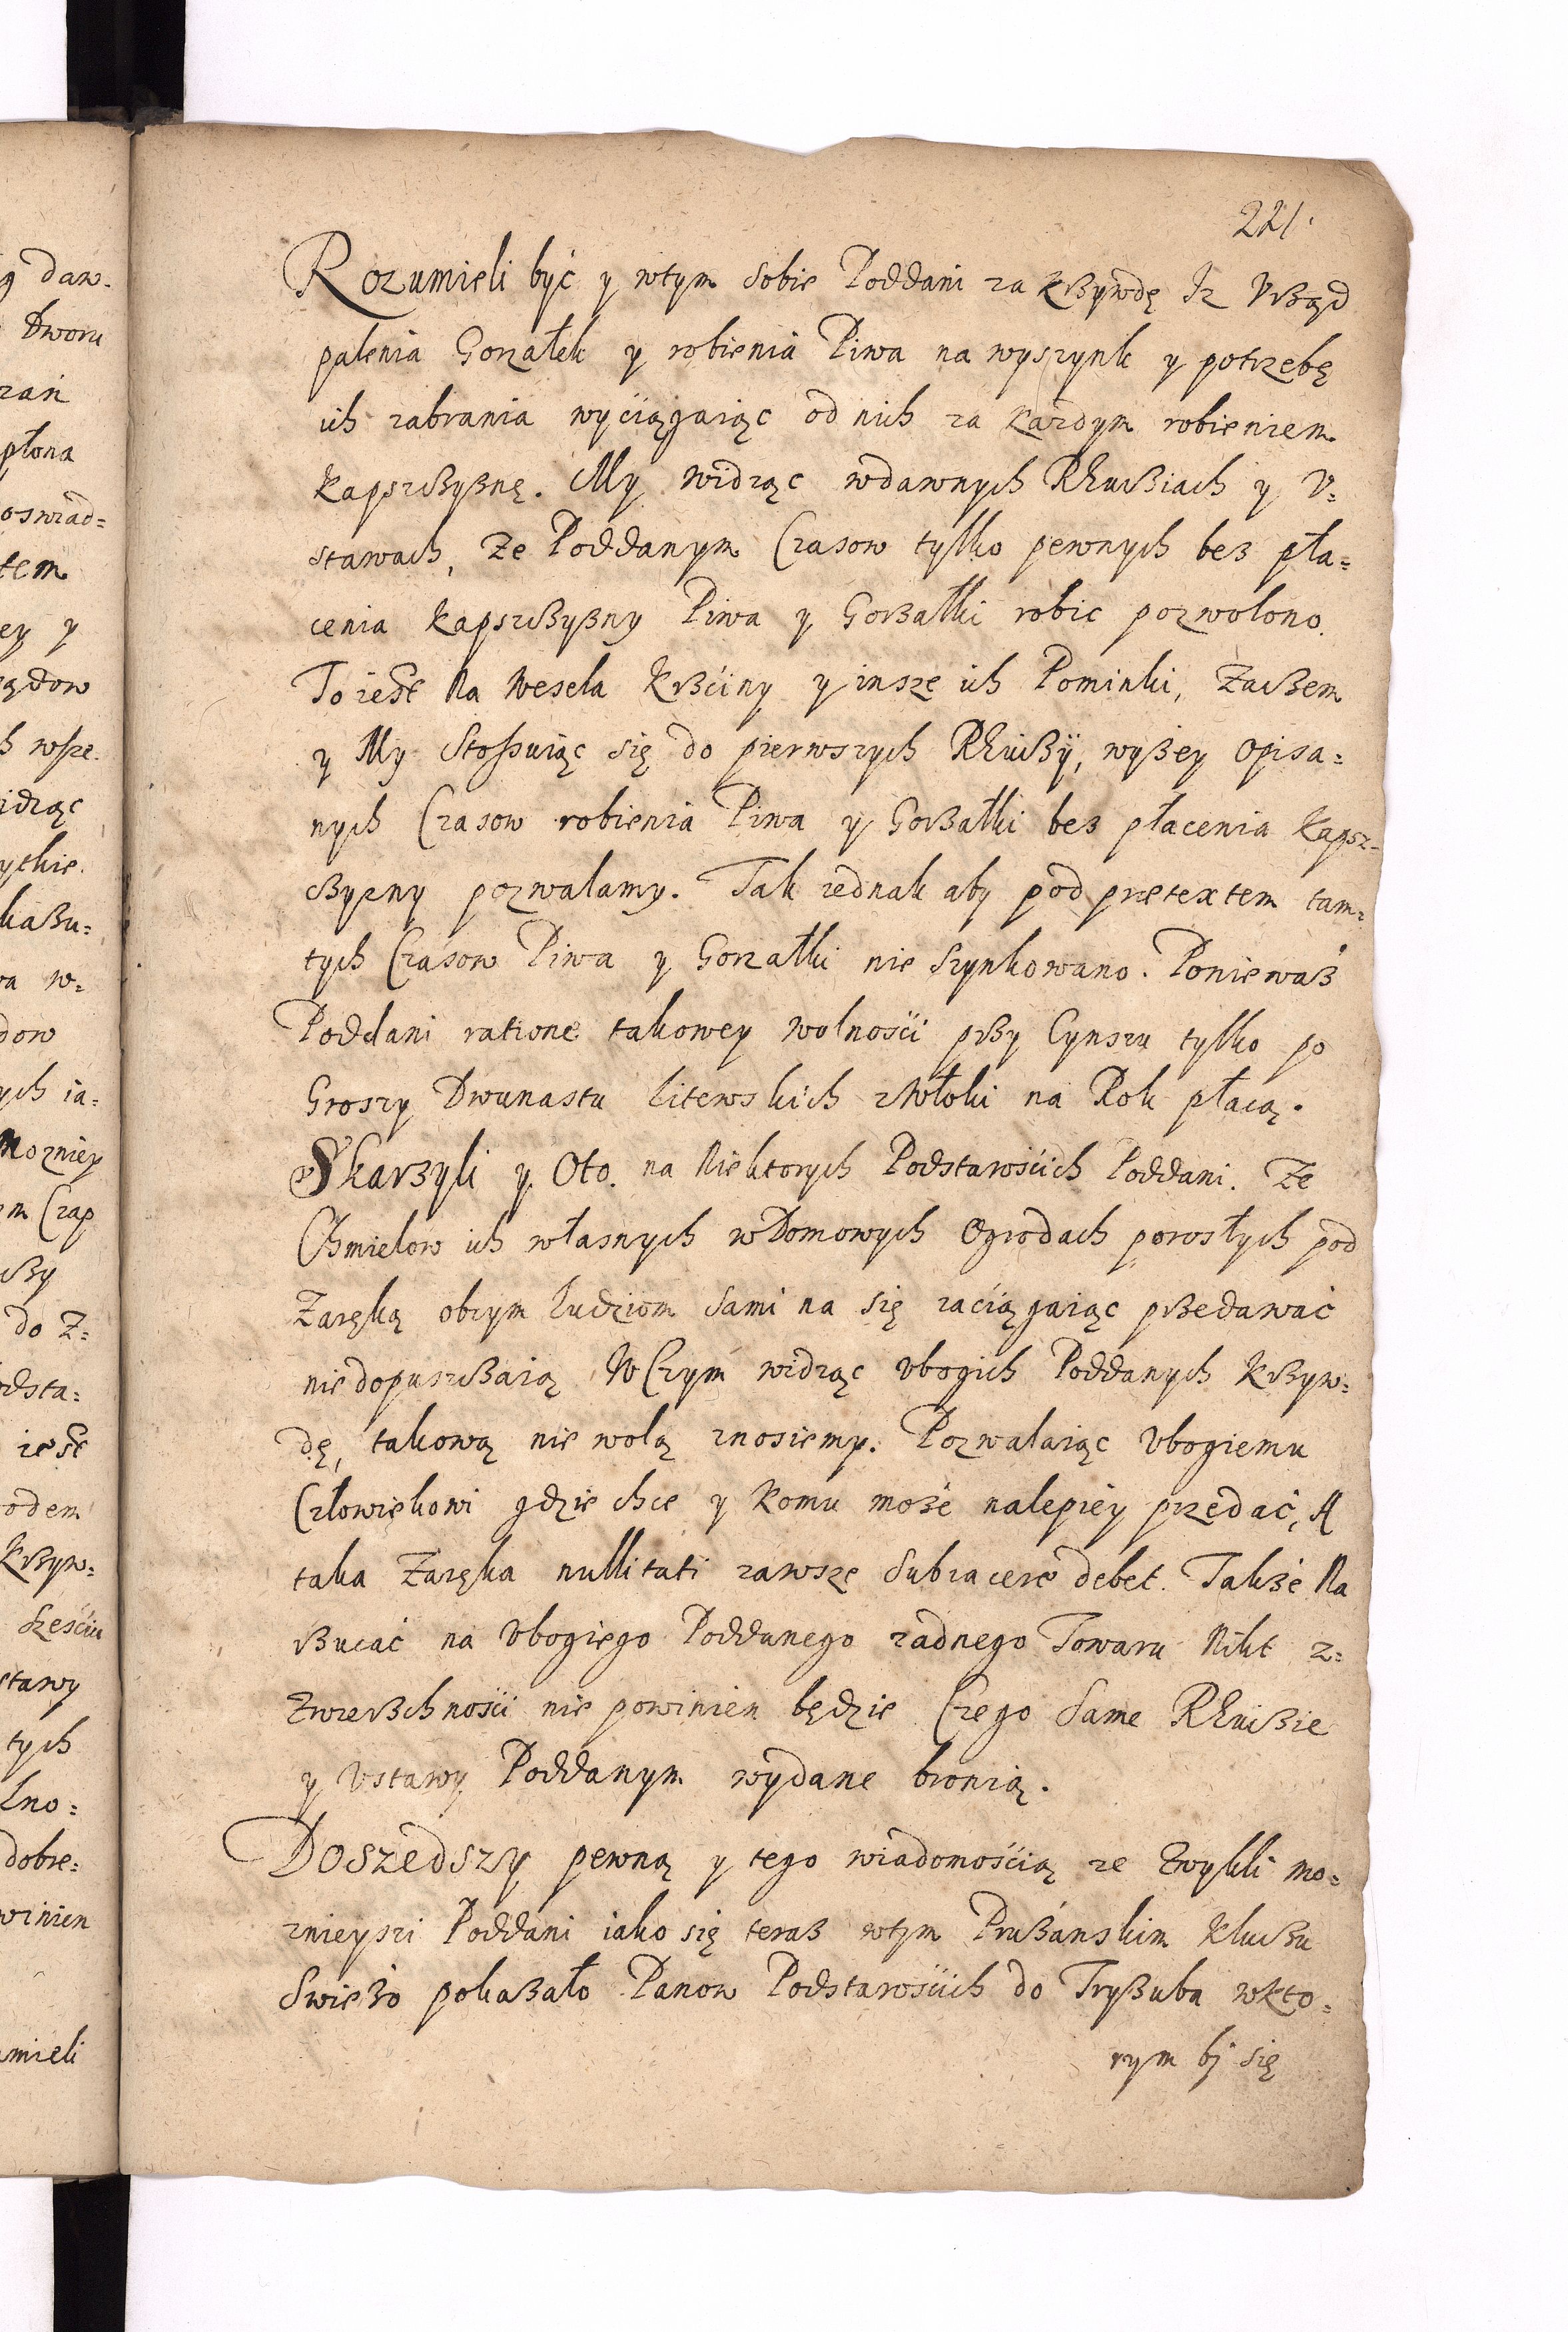 g daw-
Dworu
rań
płona
oswiad=
tem
ey y
ządow
h wsze.
idząc
ytkie.
kaßu=
ra w=
dow
ych ia=
Mozniey
m Czap
do Z=
odsta=
iest
odem
Krzyw=
sześciu
stawy
tych
lno=
dobre=
winien
umieli
221.
Rozumieli być y wtym sobie Poddani za Krzywdę Iz Vrząd
palenia Gorzałek y robienia Piwa na wyszynk y potrzebę
ich zabrania wyciągaiąc od nich za Każdym robieniem
Kapszczyznę. My widząc wdawnych REwiziach y V=
stawach, Ze Poddanym Czasow tylko pewnych bez pła=
cenia Kapszczyzny Piwa y Gorzałki robic pozwolono.
To iest Na Wesela Krzciny y insze ich Pominki, Zaczem
y My Stosuiąc się do pierwszych REwizÿ, wyżey opisa=
nych Czasow robienia Piwa y Gorzałki bez płacenia Kapsz=
czyzny pozwalamy. Tak iednak aby pod prætextem tam=
tych Czasow Piwa y Gorzałki nie szynkowano. Poniewaz
Poddani ratione takowey wolności przy Cynszu tylko po
Groszy Dwunastu Litewskich zWłoki na Rok płacą.
Skarzyli y Oto. na Niektorych Podstarościch Poddani. Ze
Chmielow ich własnych wDomowych Ogrodach porosłych pod
Zaręką obcym ludziom sami na się zaciągaiąc przedawać
niedopuszczaią WCzym widząc vbogich Poddanych Krzyw=
dę, takową nie wolą znosiemy. Pozwalaiąc Vbogiemu
Człowiekowi gdzie chce y komu może nalepiey przedać, A
taka Zaręka nullitati zawsze Subiacere debet. Także Na
rzucać na Vbogiego Poddanego żadnego Towaru Nikt z=
Zwierzchności nie powinien będzie Czego Same REwizie
y Vstawy Poddanym wydane bronią.
Doszedszy pewną y tego wiadomością ze Zwykli mo=
znieyszi Poddani iako się teraz wtym Prużanskim Kluczu
Swieżo pokazało Panow Podstarościch do Tryzuba wkto=
rym bj się